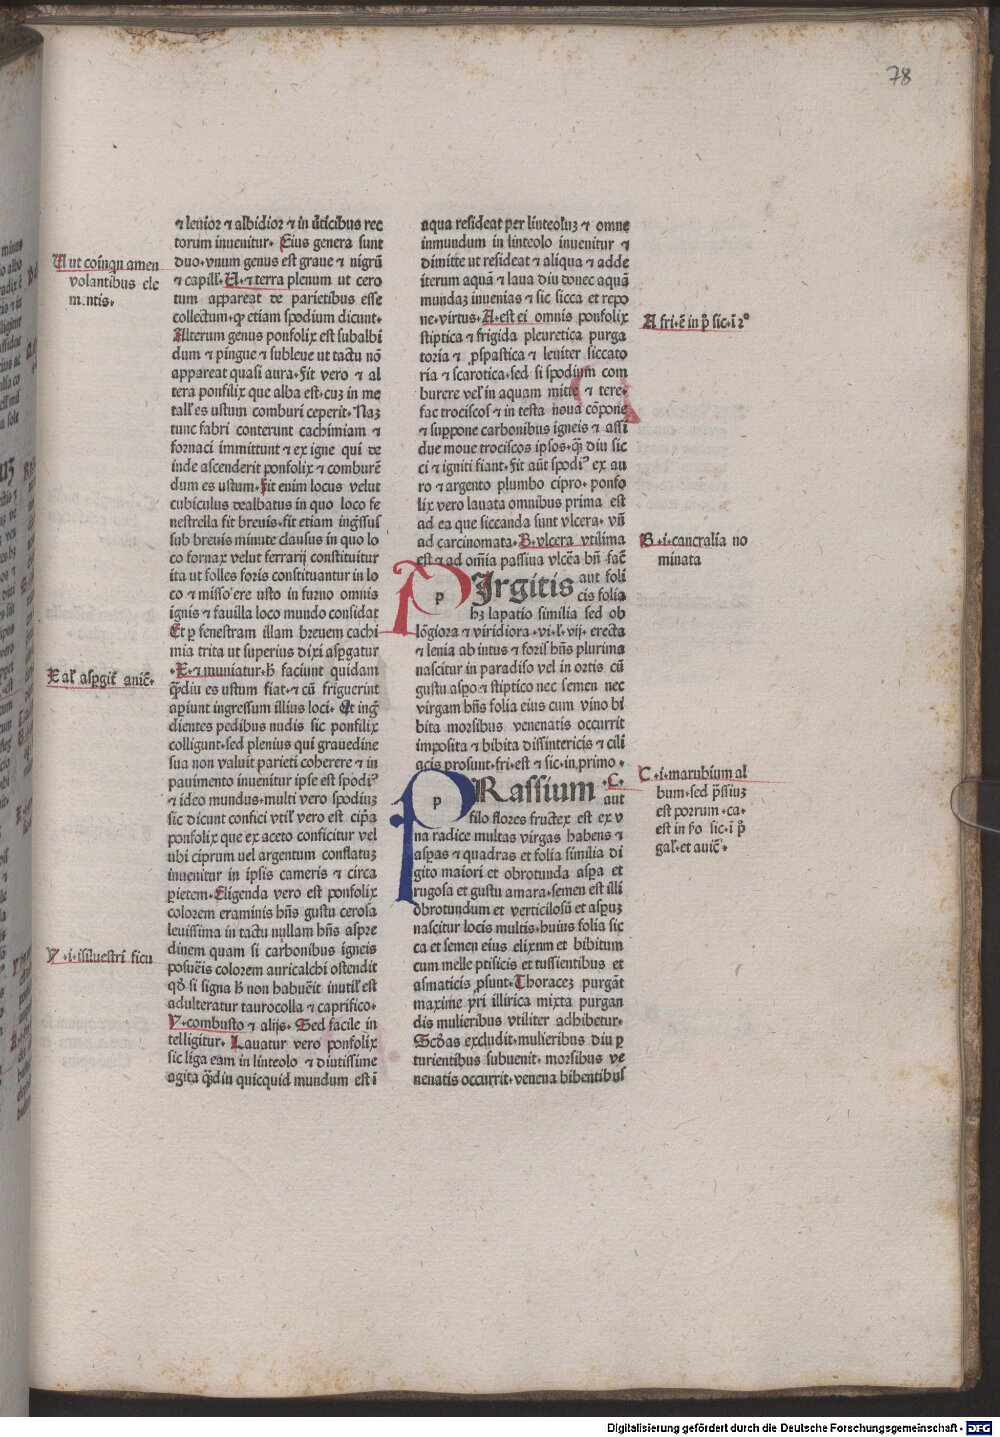 78
⁊ leuior ⁊ albidior ⁊ in v̄ticibus rec
torum inuenitur. Eius genera sunt
duo. vnum genus est graue ⁊ nigrū
⁊ capill'. U. ⁊ terra plenum ut cero
tum appareat de parietibus esse
collectum. qꝫ etiam spodium dicunt.
Alterum genus ponfolix est subalbi
dum ⁊ pingue ⁊ subleue ut tactu nō
appareat quasi aura. fit vero ⁊ al
tera ponfilix que alba est. cuꝫ in me
tall' es ustum comburi ceperit. Naꝫ
tunc fabri conterunt cachimiam ⁊
fornaci immittunt ⁊ ex igne qui de
inde ascenderit ponfolix ⁊ comburē
dum es ustum. fit enim locus velut
cubiculus dealbatus in quo loco fe
nestrella fit breuis. fit etiam ingſsus
sub breuis minute clausus in quo lo
co fornax velut ferrarij constituitur
ita ut folles foris constituantur in lo
co ⁊ misso ere usto in furno omnis
ignis ⁊ fauilla loco mundo considat
Et ꝑ fenestram illam breuem cachi
mia trita ut superius dixi aspgatur
.E. ⁊ muniatur. h̄ faciunt quidam
qͣdiu es ustum fiat. ⁊ cū friguerint
apiunt ingressum illius loci. Et ingͥ
dientes pedibus nudis sic ponfilix
colligunt. sed plenius qui grauedine
sua non valuit parieti coherere ⁊ in
pauimento inuenitur ipse est spodiꝰ
⁊ ideo mundus. multi vero spodiuꝫ
sic dicunt confici vtil' vero est cipͥa
ponfolix que ex aceto conficitur vel
ubi ciprum uel argentum conflatuꝫ
inuenitur in ipsis cameris ⁊ circa
pietem. Eligenda vero est ponfolix
colorem eraminis hn̄s gustu cerosa
leuissima in tactu nullam hn̄s aspre
dinem quam si carbonibus igneis
posuēis colorem auricalchi ostendit
qd̄ si signa h̄ non habuēit inutil' est
adulteratur taurocolla ⁊ caprifico.
Y. combusto ⁊ alijs. Sed facile in
telligitur. Lauatur vero ponfolix
sic liga eam in linteolo ⁊ diutissime
agita qͣdiu quicquid mundum est ī
aqua resideat per linteoluꝫ ⁊ omne
inmundum in linteolo inuenitur ⁊
dimitte ut resideat ⁊ aliqua ⁊ adde
iterum aquā ⁊ laua diu donec aquā
mundaꝫ inuenias ⁊ sic sicca et repo
ne. virtus. A. est ei omnis ponfolix
stiptica ⁊ frigida pleuretica purga
toria ⁊ pspastica ⁊ leuiter siccato
ria ⁊ scarotica. sed si spodium com
burere vel' in aquam mitte ⁊ tere.
fac trociscos ⁊ in testa noua cōpone
⁊ suppone carbonibus igneis ⁊ assi
due moue trociscos ipsos. qͣ diu sic
ci ⁊ igniti fiant. fit aūt spodiꝰ ex au
ro ⁊ argento plumbo cipro. ponfo
lix vero lauata omnibus prima est
ad ea que siccanda sunt vlcera. vn̄
ad carcinomata. B. vlcera vtilima
est ⁊ ad om̄ia passiua vlcēa bn̄ facͥ
p
PIrgitis aut foli
cis folia
hꝫ lapatio similia sed ob
lōgiora ⁊ viridiora .vi. l'. vij. erecta
⁊ lenia ab intus ⁊ foris hn̄s plurima
nascitur in paradiso vel in ortis cū
gustu aspo ⁊ stiptico nec semen nec
virgam hn̄s folia eius cum vino bi
bita morsibus venenatis occurrit
imposita ⁊ bibita dissintericis ⁊ cili
acis prosunt. fri. est ⁊ sic. in. primo.
p
PRassium .C. aut
filo flores fructex est ex v
na radice multas virgas habens ⁊
aspas ⁊ quadras et folia similia di
gito maiori et obrotunda aspa et
rugosa et gustu amara. semen est illi
obrotundum et verticilosū et aspuꝫ
nascitur locis multis. huius folia sic
ca et semen eius elixum et bibitum
cum melle ptisicis et tussientibus et
asmaticis psunt. Thoraceꝫ purgāt
maxime yri illirica mixta purgan
dis mulieribus vtiliter adhibetur.
Scd̄as excludit. mulieribus diu ꝑ
turientibus subuenit. morsibus ve
nenatis occurrit. venena bibentibus
U ut coīnqu amen
volantibus ele
m.ntis.
E al' aspgit' anic̄.
Y .i. siluestri ficu
A fri. ē in p̄ sic. ī ꝛ°
B .i. cancralia no
minata
C .i. marubium al
bum. sed p̄ssiuꝫ
est porrum .ca.
est in fo sic. ī p̄
gal'. et auic̄.
Digitalisierung gefördert durch die Deutsche Forschungsgemeinschaft - DFG